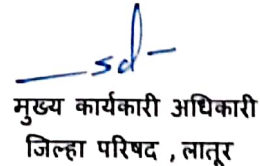 sd
मुख्य कार्यकारी अधिकारी
जिल्हा परिषद , लातूर